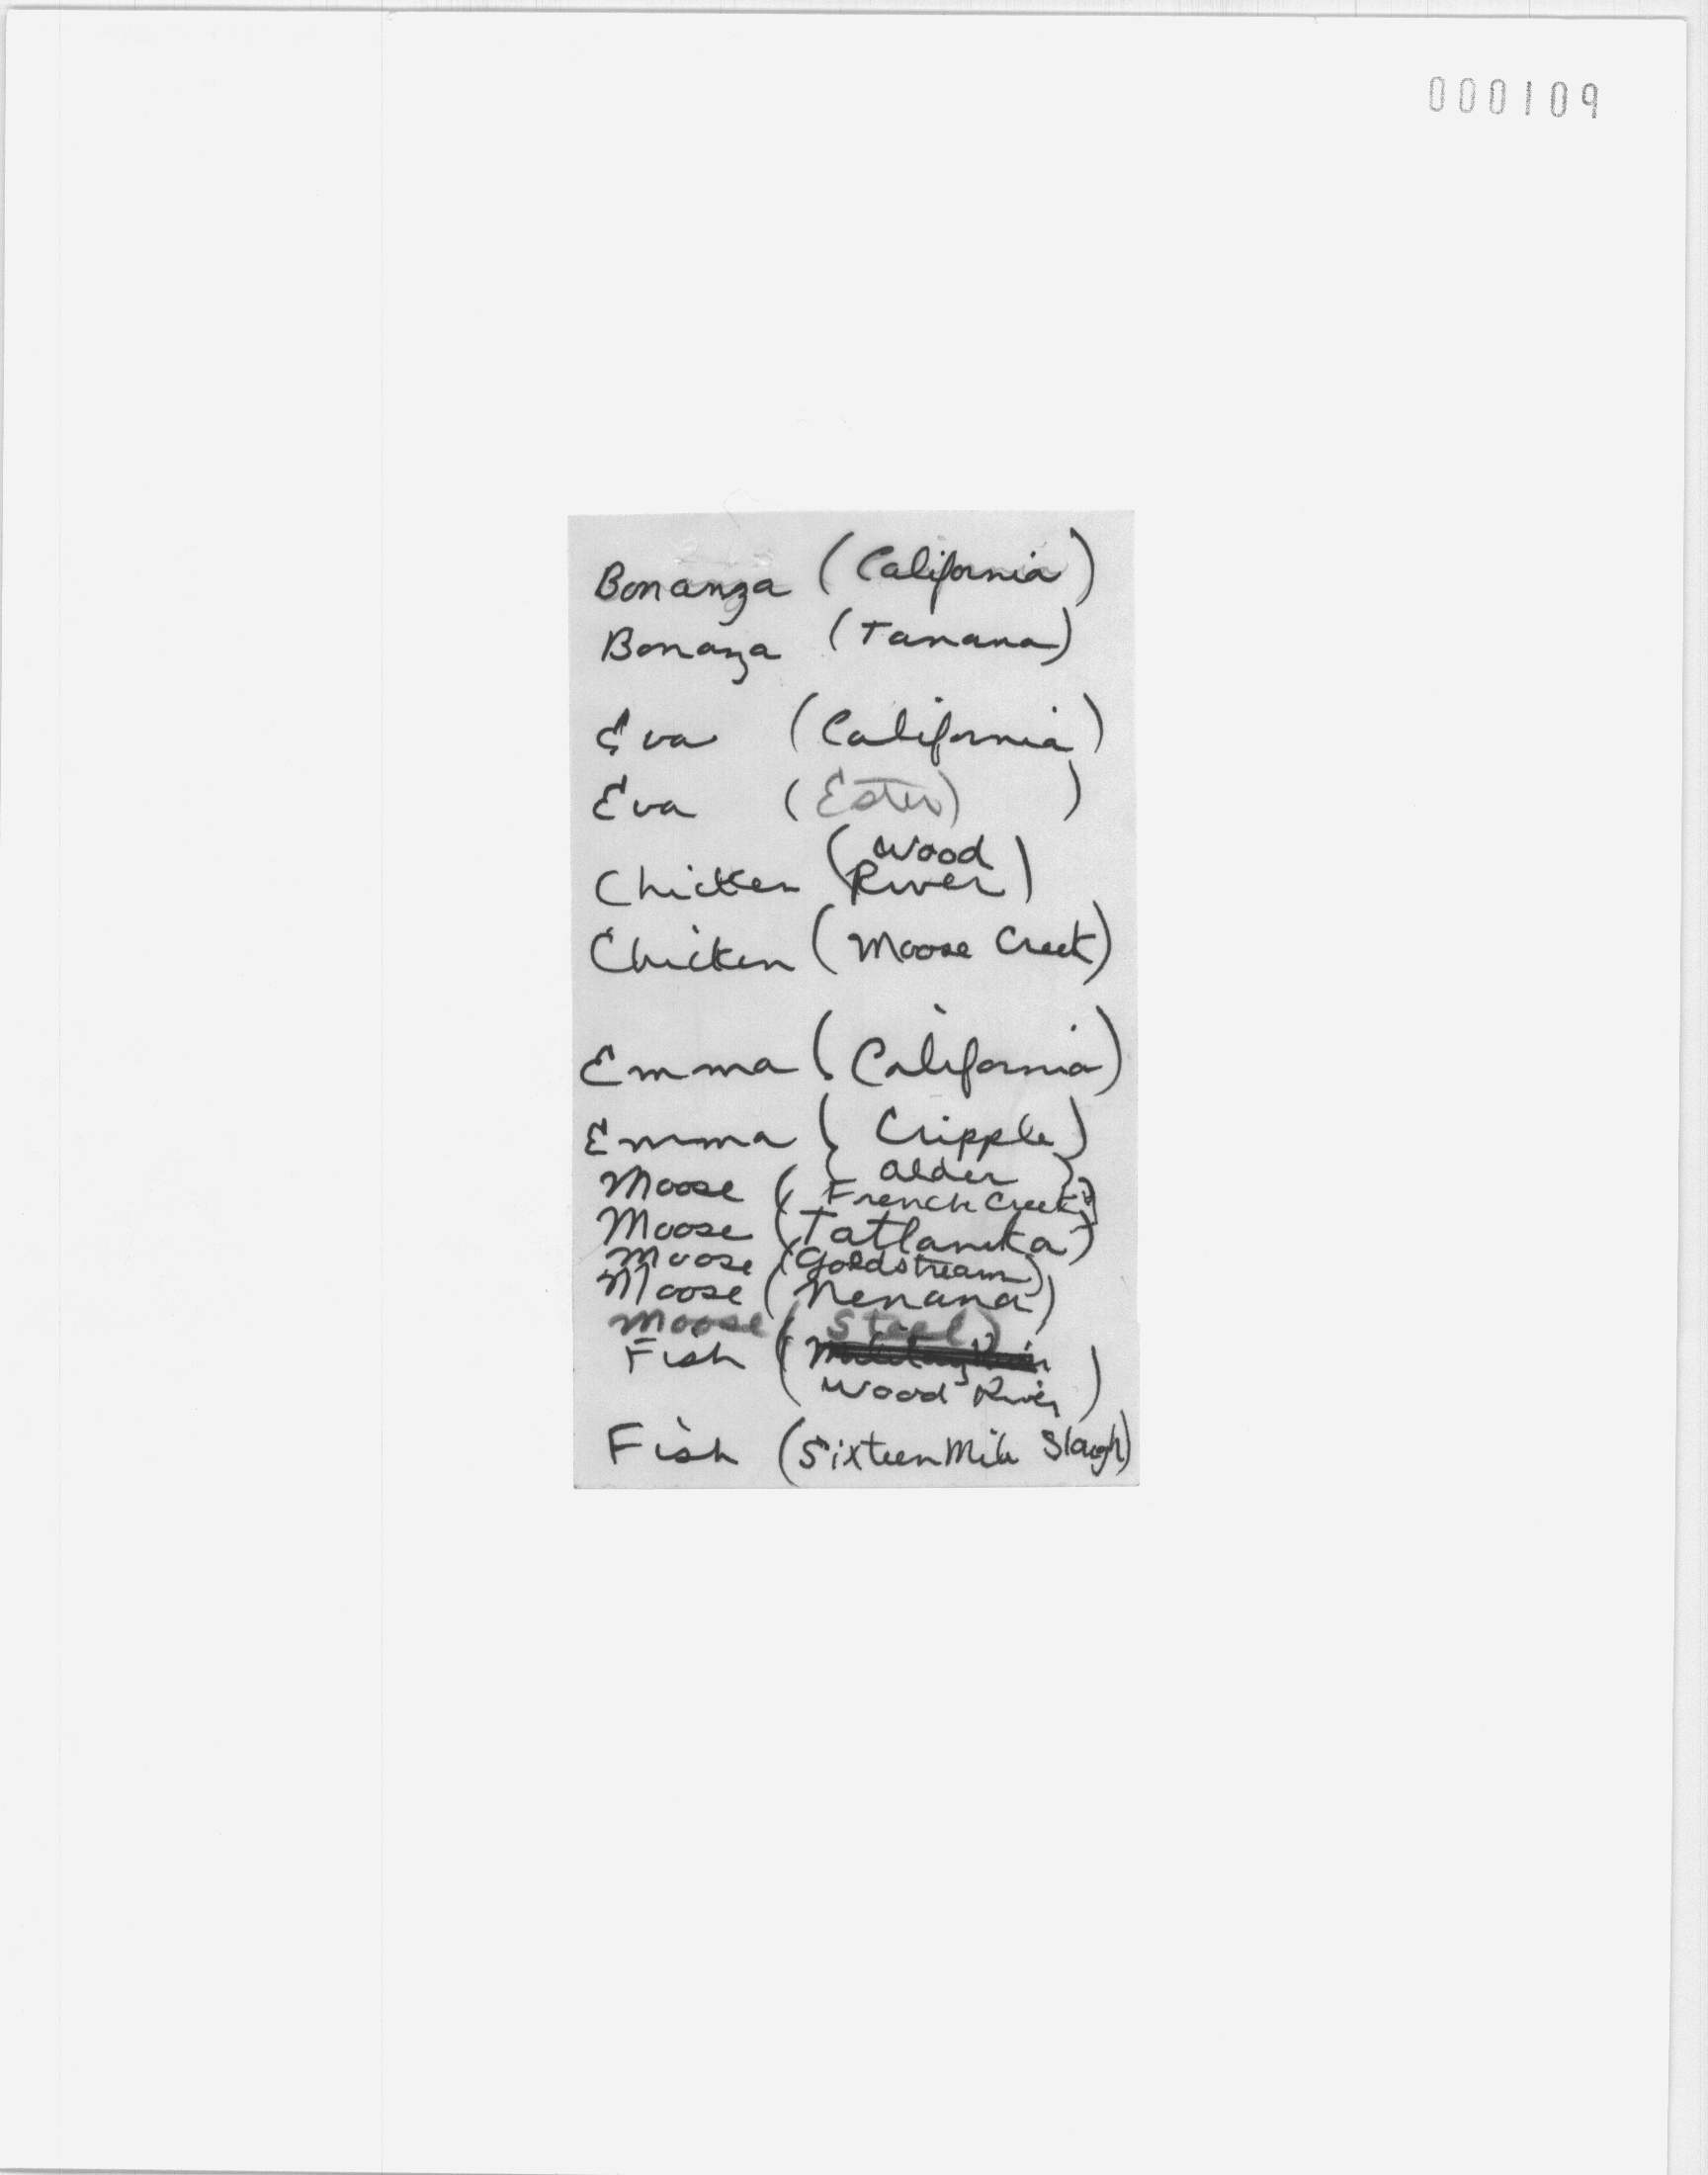 000109
Bonanza (California)
Bonaza (Tanana)
Eva (California)
Eva (Ester) )
(Wood
Chicken River)
Chicken (Moose Creek)
Emma (California)
Emma (Cripple)
{ Alder }
Moose ( French Creek )
Moose (Tatlanika)
Moose (Goldstream)
Moose (Nenana)
Moose ( Steel)
Fish (
Wood River )
Fish (Sixteen Mile Slough)